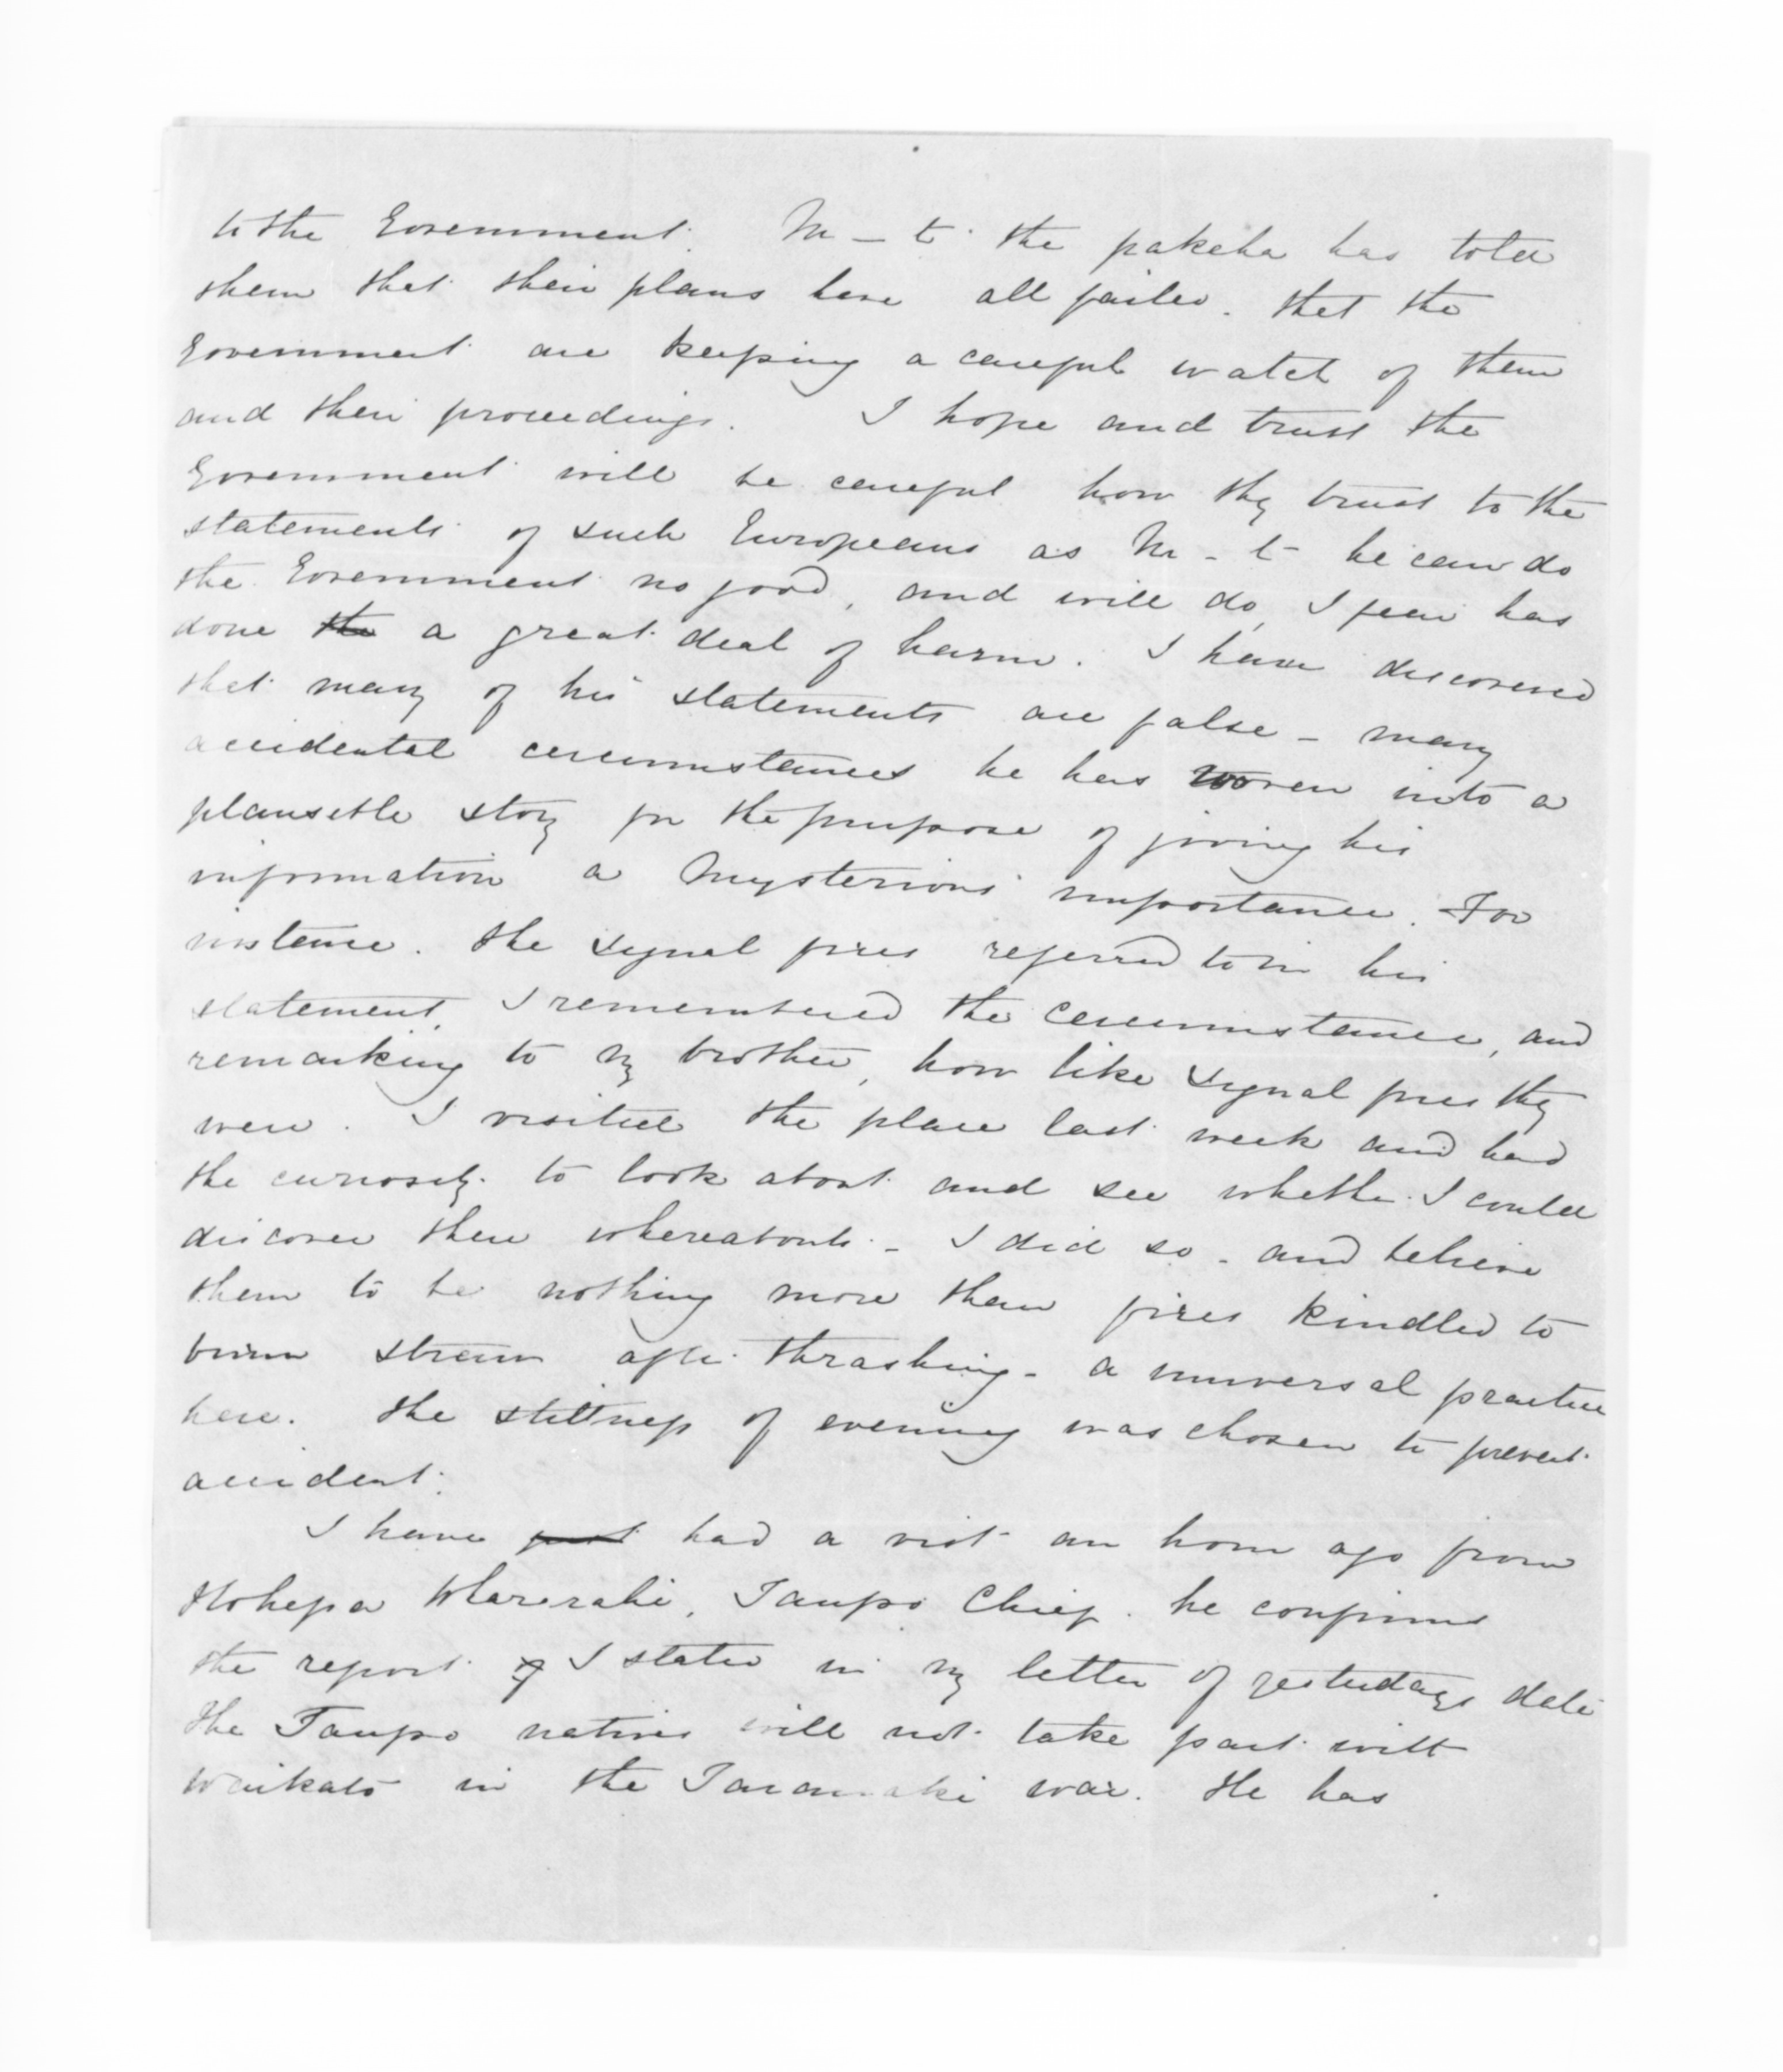 to the Government. M — t. the pakeha has told
them that their plans have all failed. that the
Government are keeping a careful watch of them
and their proceedings. I hope and trust the
Government will be careful how they trust to the
statements of such Europeans as M - t - he can do
the Government no good, and will do, I fear has
done the a great deal of harm. I have discovered
that many of his statements are false - many
accidental circumstances he has woven into a
plausible story for the purpose of giving his
information a mysterious importance. For
instance. the signal fires referred to in his
statement, I remembered the circumstance, and
remarking to my brother, how like signal fires they
were. I visited the place last week and had
the curiosity to look about and see whether I could
discover there whereabouts - I did so - and believe
them to be nothing more than fires kindled to
burn straw after thrashing - a universal practice
here. the stillness of evening was chosen to prevent
accident.
I have just had a visit an hour ago from
Hohepa Taupo Chief. he confirms
the report I stated in my letter of yesterdays date
the Taupo natives will not take part with
Waikato in the Taranaki war. He has